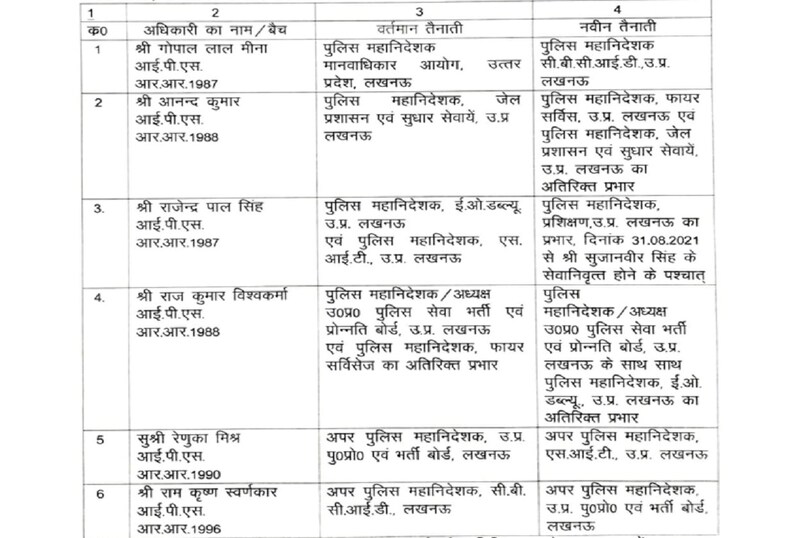 1 2 3 4
क0 अधिकारी का नाम/बैच वर्तमान तैनाती नवीन तैनाती
1 श्री गोपाल लाल मीना
आई.पी.एस.
आर.आर.1987
पुलिस महानिदेशक
मानवाधिकार आयोग, उत्तर
प्रदेश, लखनऊ
पुलिस महानिदेशक
सी.बी.सी.आई.डी.,उ.प्र.
लखनऊ
2 श्री आनन्द कुमार
आई.पी.एस.
आर.आर.1988
पुलिस महानिदेशक, जेल
प्रशासन एवं सुधार सेवायें, उ.प्र
लखनऊ
पुलिस महानिदेशक, फायर
सर्विस, उ.प्र. लखनऊ एवं
पुलिस महानिदेशक, जेल
प्रशासन एवं सुधार सेवायें,
उ.प्र. लखनऊ का
अतिरिक्त प्रभार
3. श्री राजेन्द्र पाल सिंह
आई.पी.एस.
आर.आर.1987
पुलिस महानिदेशक, ई.ओ.डब्ल्यू.
उ.प्र. लखनऊ
एवं पुलिस महानिदेशक, एस.
आई.टी., उ.प्र. लखनऊ
पुलिस महानिदेशक,
प्रशिक्षण,उ.प्र. लखनऊ का
प्रभार, दिनांक 31.08.2021
से श्री सुजानवीर सिंह के
सेवानिवृत्त होने के पश्चात्
4. श्री राज कुमार विश्वकर्मा
आई.पी.एस.
आर.आर.1988
पुलिस महानिदेशक/अध्यक्ष
उ0प्र0 पुलिस सेवा भर्ती एवं
प्रोन्नति बोर्ड, उ.प्र. लखनऊ
एवं पुलिस महानिदेशक, फायर
सर्विसेज का अतिरिक्त प्रभार
पुलिस
महानिदेशक/अध्यक्ष
उ0प्र0 पुलिस सेवा भर्ती
एवं प्रोन्नति बोर्ड, उ.प्र.
लखनऊ के साथ साथ
पुलिस महानिदेशक, ई.ओ.
डब्ल्यू., उ.प्र. लखनऊ का
अतिरिक्त प्रभार
5 सुश्री रेणुका मिश्र
आई.पी.एस.
आर.आर.1990
अपर पुलिस महानिदेशक, उ.प्र.
पु0प्रो0 एवं भर्ती बोर्ड, लखनऊ
अपर पुलिस महानिदेशक,
एस.आई.टी., उ.प्र. लखनऊ
6 श्री राम कृष्ण स्वर्णकार
आई.पी.एस.
आर.आर.1996
अपर पुलिस महानिदेशक, सी.बी.
सी.आई.डी., लखनऊ
अपर पुलिस महानिदेशक,
उ.प्र. पु0प्रो0 एवं भर्ती बोर्ड,
लखनऊ